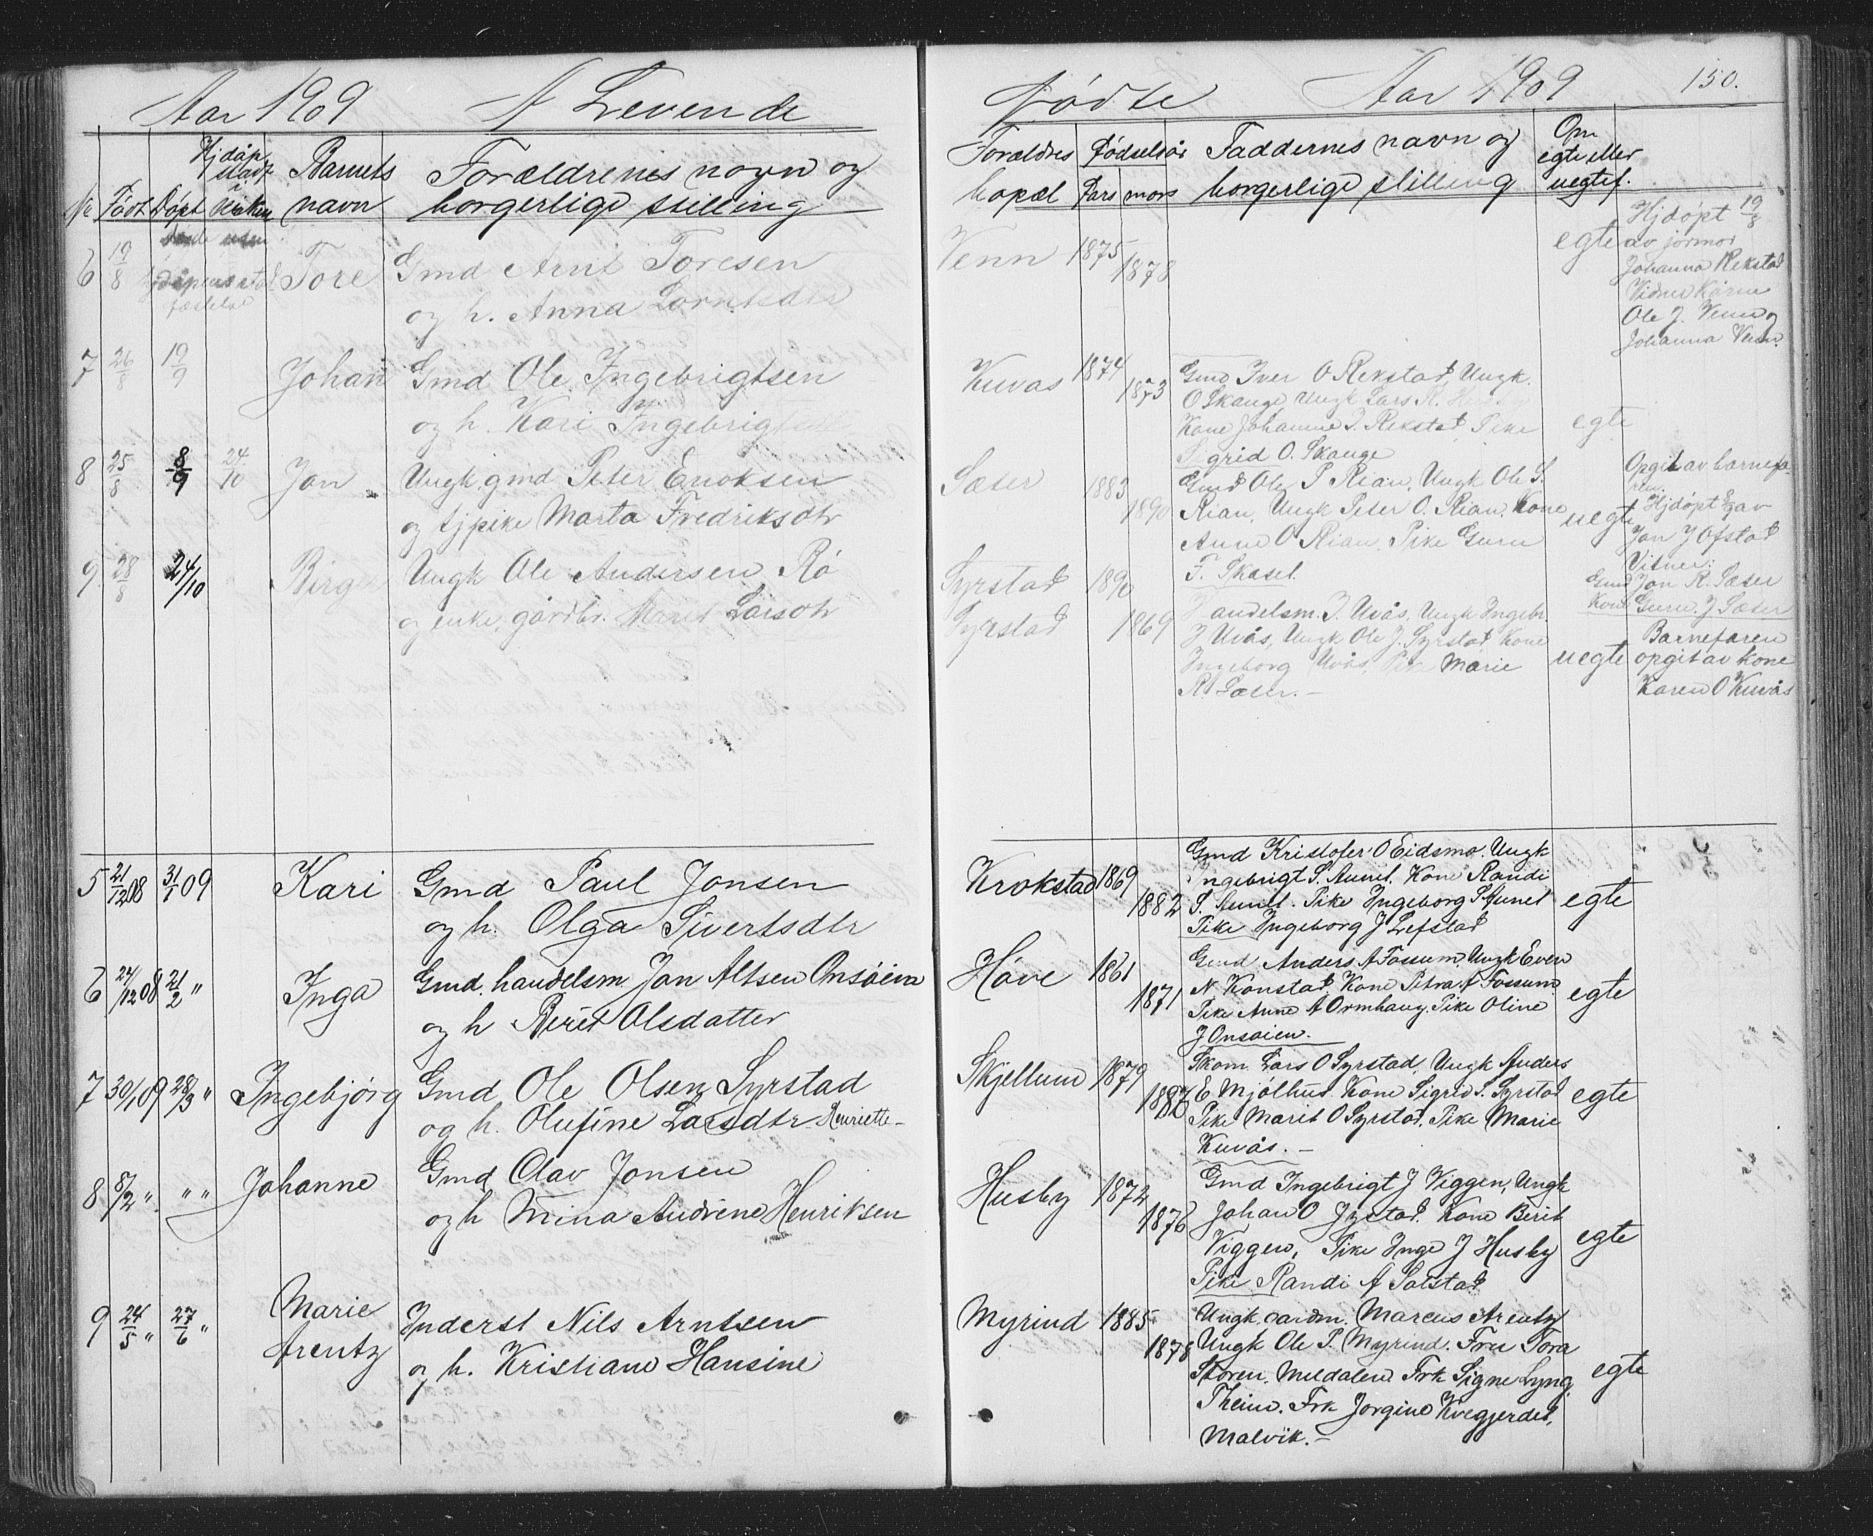 Aar 1909 A Levende
Nr. Født Døpt Barnets navn Forældrenes navn og borgerlige stilling
6 19/8 Tore Gmd Arnt Toresen
og h. Anna Lorntsdtr
7 26/8 19/9 Johan Gmd Ole Ingebrigtsen
og h. Kari
8 25/8 8/9 24/10 Jon Ungk. gmd Peter Enoksen
og tjpike Marta Fredriksdtr
9. 28/8 24/10 Birger Ungk Ole Andersen Rø
og enke, gårdbr. Marit Larsdtr
5 21/12 08 31/1 09 Kari Gmd Paul Jonsen
og h. Olga Sivertsdtr
6 24/12 08 21/2 " Inga Gmd. handelsm. Jon Altsen Onsøien
og h Beret Olsdatter
7 30/1 09 28/3 " Ingebjørg Gmd Ole Olsen Syrstad
og h. Olufine Larsdtr Henriette
8 8/2 " " " Johanne Gmd Olav Jonsen
og h Mina Andrene Henriksen
9 24/5 " 27/6 " Marie Arentz Inderst Nils Arntsen
og h. Kristiane Hansine
Fødte Aar 1909 150.
Forældres bopæl Fødselsår Fars mors Faddernes navn og borgerlige stilling Om egte eller uegtef.
Venn 1875 1878 egte Hjdøpt 19/8
av jormor
Johanna Rekstad
Vidner Karen
Ole J. Venn og
Johanna Venn.
Kuvas 1874 1873 Gmd Iver O Rekstad, Ungk.
O Skauge, Ungk Lars R.
Kone Johanne I. Rekstad, Pike
Sigrid O. Skauge egte
Sæter 1883 1890 Gmd Ole P Rian, Ungk Ole S.
Rian, Ungk Peter O. Rian, Kone
Anne O Rian, Pike Guru
F. Skasel. uegte
Opgit av barnefaren.
Hjdøpt av
Jon J Ofstad
Vitner:
Gmd Jon R. Sæter
Kone Guru J Sæter
Syrstad 1890
Syrstad 1869 Handelsm. J. Uvås, Ungk Ingebr.
J Uvås, Ungk Ole J. Syrstad, Kone
Ingeborg Uvås, Marie
R. Sæter. uegte
Barnefaren
opgit av kone
Karen O Kuvås
Krokstad 1869 1882 Gmd Kristofer O Eidsmo. Ungk
Ingebrigt S. Aunet. Kone Randi
S. Aunet. Pike Ingeborg S Aunet
Pike Ingeborg J Lefstad egte
Høve 1861 1871 Gmd Anders A Fossum, Ungk Even
N Konstad, Kone Petra A Fossum
Pike Anne A Ormhaug. Pike Oline
J Onsøien. egte
Skjellum 1879 Skom. Lars O Syrstad, Ungk Anders
E Mjølhus. Kone Sigrid S. Syrstad
Pike Marit O Syrstad, Pike Marie
Kuvås. egte
Husby 1872 1876 Gmd Ingebrigt J Viggen, Ungk
Johan O Syrstad. Kone Berit
Viggen, Pike Inge J Husby
Pike Randi A Solstad egte
Myrind 1885 1878 Ungk. Marcus Arentz
Ungk Ole P. Myrind. Fru Tora
Støren, Meldalen. Frk Signe Lyng,
Frk Jorgine Kvegjerdet,
Malvik. egte